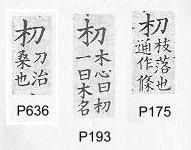 朷
刀治
桑也
P636
朷
木心曰朷
一曰木名
P193
朷
枝落也
通作條
P175